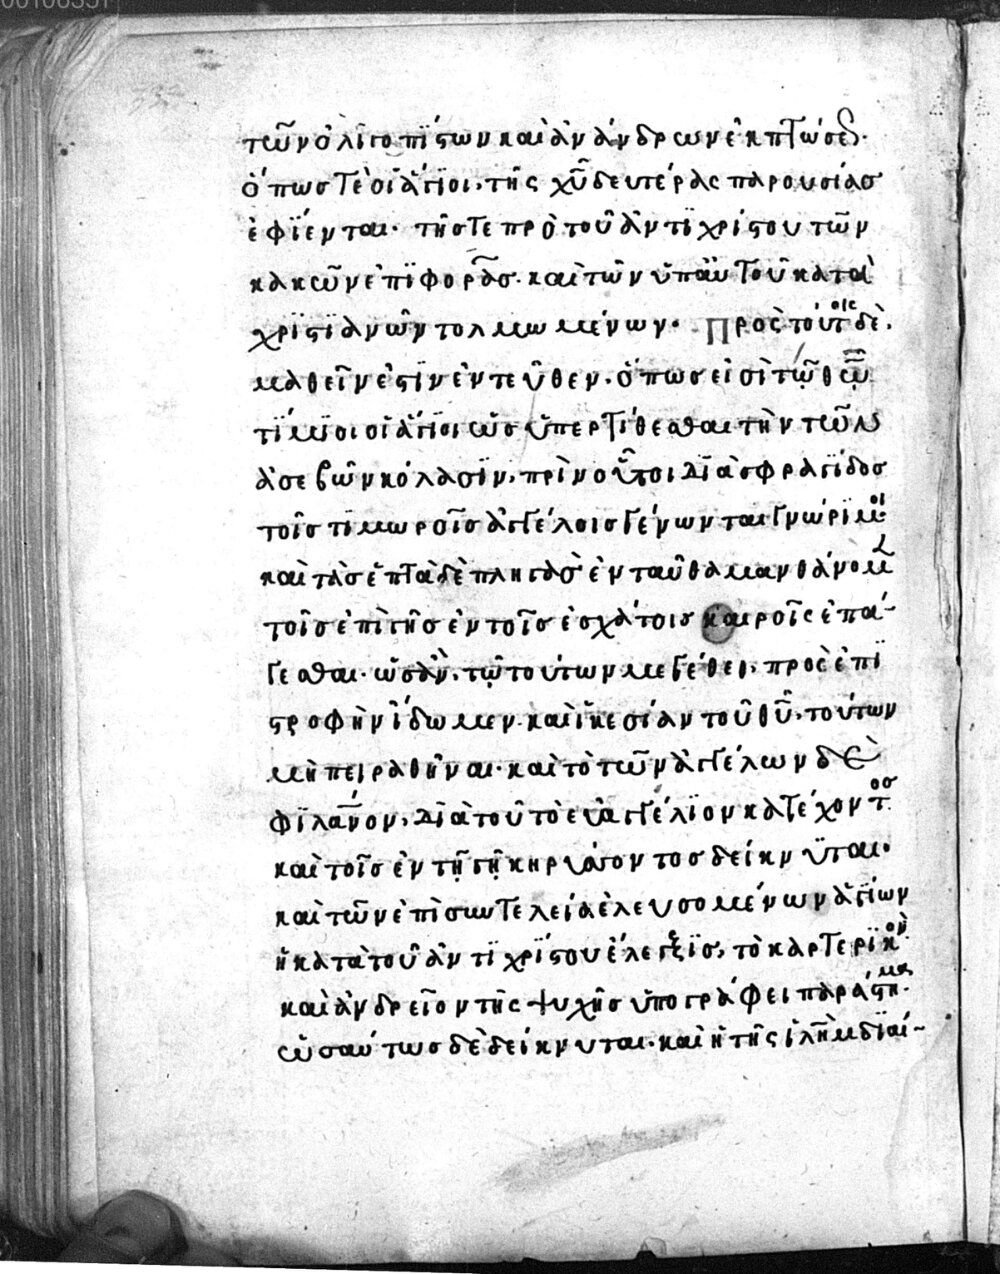 00106351
τῶν ὀλιγοπίστων καὶ ἀνάνδρων ἐκπτώσεις·
ὅπως τὲ οἱ ἅγιοι, τῆς χῦ δευτέρας παρουσίας
ἐφΐενται· τῆς τε πρὸ τοῦ ἀντιχρίστου τῶν
κακῶν ἐπϊφορᾶς· καὶ τῶν ὑπ' αὐτοῦ κατὰ
χρϊστϊανῶν τολμωμένων· Πρὸς τούτοις δὲ,
μαθεῖν ἐστὶν ἐντεῦθεν· ὅπως εἰσὶ τῷ θῷ
τίμϊοι οἱ ἅγϊοι ὡς ὑπερτίθεσθαι τὴν τῶν
ἀσεβῶν κόλασϊν, πρὶν οὗτοι δϊὰ σφραγῖδος
τοῖς τϊμωροῖς ἀγγέλοις γένωνται γνώρϊμοι
καὶ τὰς ἑπτὰ δὲ πληγὰς ἐνταῦθα μανθάνομεν
τοῖς ἐπὶ τῆς ἐν τοῖς ἐσχάτοις καιροῖς ἐπά-
γεσθαι· ὡς ἂν, τῷ τούτων μεγέθει, πρὸς ἐπϊ
στροφὴν ἴδωμεν· καὶ ἱκεσίαν τοῦ θῦ, τούτων
μὴ πειραθῆναι· καὶ τὸ τῶν ἀγγέλων δὲ
φϊλᾱνον, δϊὰ τοῦ τὸ εὐαγγέλϊον κατέχοντος
καὶ τοῖς ἐν τῇ γῇ κηρύσσοντος δείκνϋται·
καὶ τῶν ἐπὶ συντελείᾳ ἐλευσομένων ἁγίων
ἡ κατὰ τοῦ ἀντϊχρίστου ἔλεγξϊς, τὸ καρτερϊκὸν
καὶ ἀνδρεῖον τῆς ψυχῆς ὑπογράφει παράστημα·
ὡσαύτως δὲ δείκνυται· καὶ ἡ τῆς ἱλὴμ δϊαί-